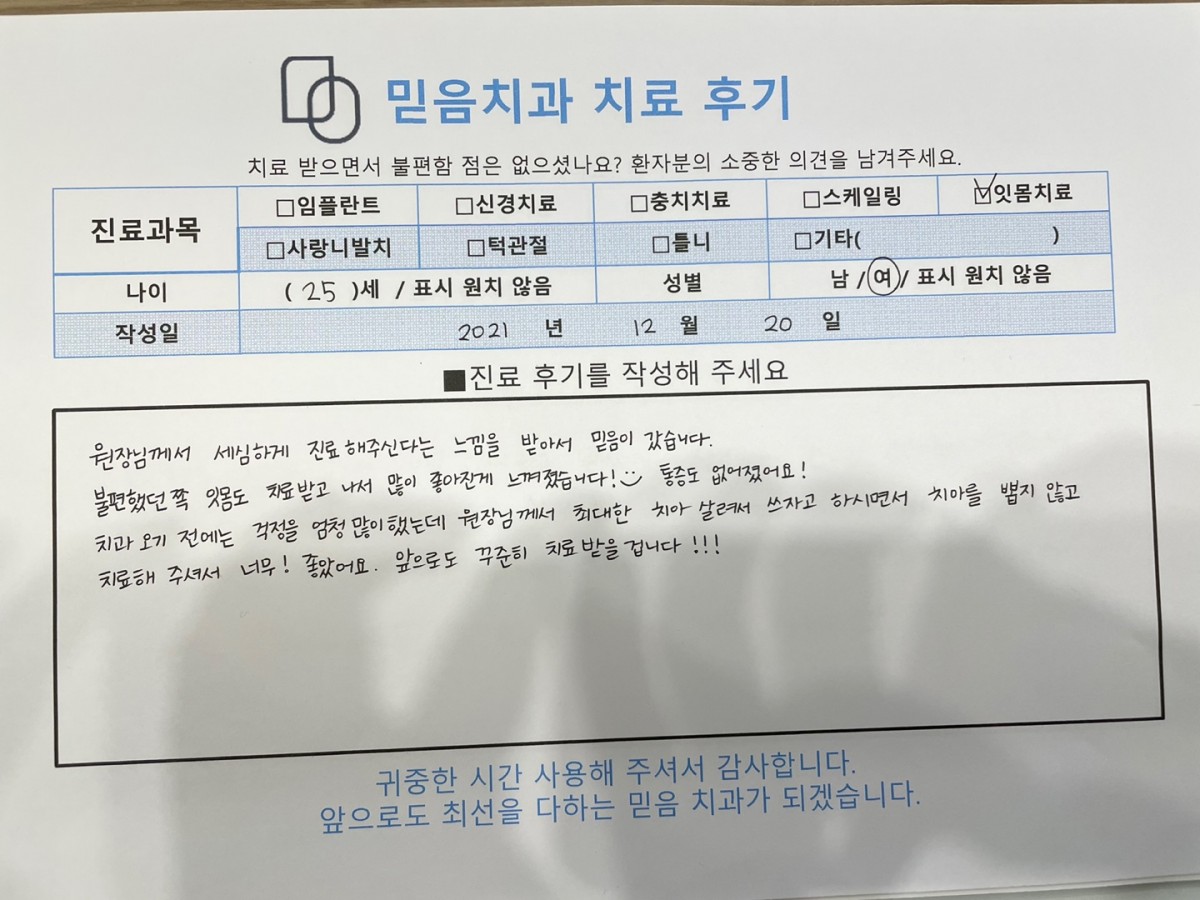 믿음치과 치료 후기
치료 받으면서 불편함 점은 없으셨나요? 환자분의 소중한 의견을 남겨주세요.
진료과목 □임플란트 □신경치료 □충치치료 □스케일링 ☑잇몸치료
□사랑니발치 □턱관절 □틀니 □기타( )
나이 ( 25 )세 / 표시 원치 않음 성별 남 / 여 / 표시 원치 않음
작성일 2021 년 12 월 20 일
■진료 후기를 작성해 주세요
원장님께서 세심하게 진료해주신다는 느낌을 받아서 믿음이 갔습니다.
불편했던 쪽 잇몸도 치료받고 나서 많이 좋아진게 느껴졌습니다! 통증도 없어졌어요!
치과 오기 전에는 걱정을 엄청 많이했는데 원장님께서 최대한 치아 살려서 쓰자고 하시면서 치아를 뽑지 않고
치료해 주셔서 너무! 좋았어요. 앞으로도 꾸준히 치료 받을겁니다!!!
귀중한 시간 사용해 주셔서 감사합니다.
앞으로도 최선을 다하는 믿음 치과가 되겠습니다.